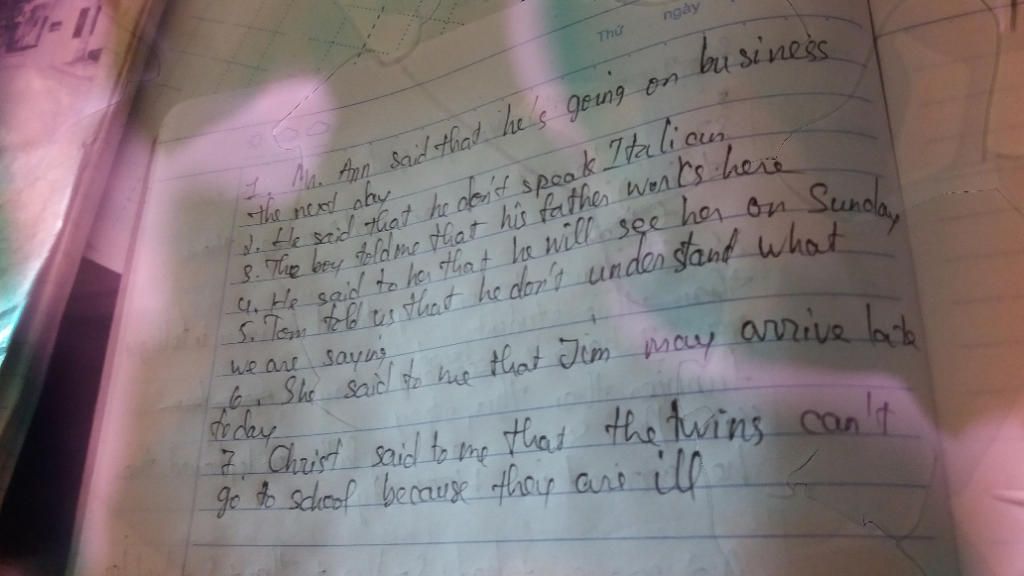 Thứ ngày
1. Mr. Ann said that he's going on business
the next day
2. He said that he don't speak Italian
3. The boy told me that his father works here
4. He said to her that he will see her on Sunday
5. Tom told us that he don't understand what
we are saying
6. She said to me that Jim may arrive late
today
7. Christ said to me that the twins can't
go to school because they are ill